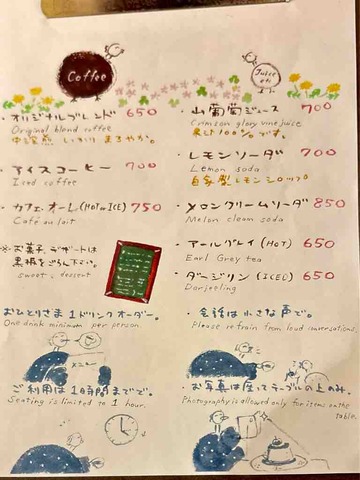 Coffee
・オリジナルブレンド 650
Original blend coffee
中深煎 しっかり まろやか。
・アイスコーヒー 700
Iced coffee
・カフェオーレ(HOT or ICE) 750
Café au lait
※お菓子、デザートは
黒板をごらん下さい。
sweet, dessert
おひとりさま1ドリンクオーダー。
One drink minimum per person.
メニュー
ご利用は1時間までで。
Seating is limited to 1 hour.
Juice
etc
・山葡萄ジュース 700
Crimson glory vine juice
果汁100%です。
・レモンソーダ 700
Lemon soda
自家製レモンシロップ。
・メロンクリームソーダ 850
Melon cleam soda
・アールグレイ(HOT) 650
Earl Grey tea
・ダージリン(ICED) 650
Darjeeling
・会話は小さな声で。
Please refrain from loud conversations.
・お写真は座ってテーブルの上のみ。
Photography is allowed only for items on the table.